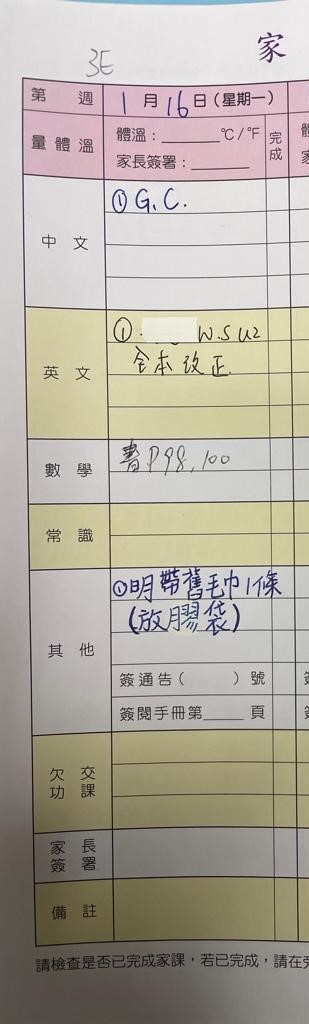 3E
家
第 週 1月16日(星期一)
量體溫 體溫:______℃/℉ 完成
家長簽署:______
中文 ①G.C.
英文 ① W.S U2
全本改正
數學 書P98,100
常識
其他 ①明帶舊毛巾1條
(放膠袋)
簽通告( )號
簽閱手冊第____頁
欠交功課
家長簽署
備註
請檢查是否已完成家課,若已完成,請在